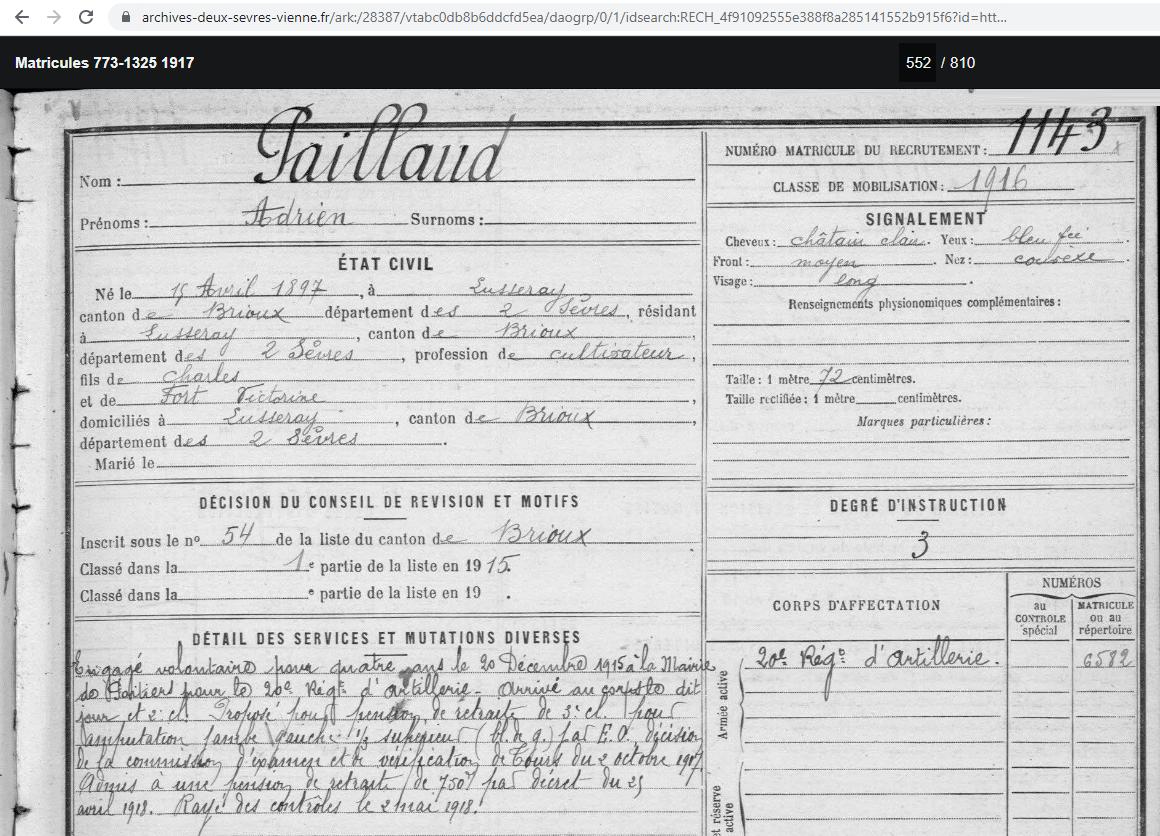 archives-deux-sevres-vienne.fr/ark:/28387/vtabc0db8b6ddcfd5ea/daogrp/0/1/idsearch:RECH_4f91092555e388f8a285141552b915f6?id=htt...
Matricules 773-1325 1917
552 / 810
Nom : Paillaud
Prénoms : Adrien Surnoms :
ÉTAT CIVIL
Né le 15 Avril 1897, à Lusseray
canton de Brioux département des 2 Sèvres, résidant
à Lusseray, canton de Brioux
département des 2 Sèvres, profession de cultivateur,
fils de Charles
et de Fort Victorine,
domiciliés à Lusseray, canton de Brioux,
département des 2 Sèvres.
Marié le
DÉCISION DU CONSEIL DE REVISION ET MOTIFS
Inscrit sous le nº 54 de la liste du canton de Brioux
Classé dans la 1e partie de la liste en 1915.
Classé dans la e partie de la liste en 19 .
DÉTAIL DES SERVICES ET MUTATIONS DIVERSES
Engagé volontaire pour quatre ans le 20 Décembre 1915 à la Mairie
de Poitiers pour le 20e Régt d'artillerie - Arrivé au corps le dit
jour et 2e cl. Proposé pour pension de retraite de 3e cl. pour
amputation jambe gauche 1/3 supérieur (bl. de g.) par E.O. décision
de la commission d'examen et de vérification de Tours du 2 octobre 1917.
Admis à une pension de retraite de 750f par décret du 25
avril 1918. Rayé des contrôles le 2 mai 1918.
NUMÉRO MATRICULE DU RECRUTEMENT : 1143
CLASSE DE MOBILISATION : 1916
SIGNALEMENT
Cheveux : châtain clair. Yeux : bleu fcé.
Front : moyen Nez : convexe.
Visage : long.
Renseignements physionomiques complémentaires :
Taille : 1 mètre 72 centimètres.
Taille rectifiée : 1 mètre centimètres.
Marques particulières :
DEGRÉ D'INSTRUCTION
3
CORPS D'AFFECTATION
NUMÉROS
au CONTROLE spécial
MATRICULE ou au répertoire
Armée active
20e Régt d'Artillerie. 6582
et réserve
active